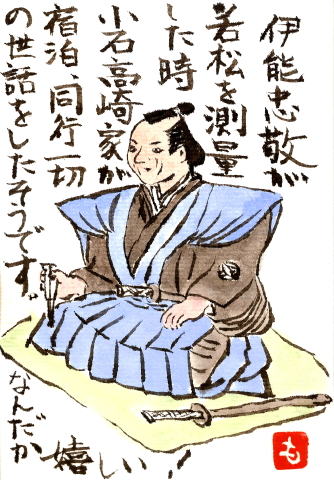 伊能忠敬が
若松を測量
した時
小石高崎家が
宿泊、同行一切
の世話をしたそうです。
なんだか
嬉しい！
も